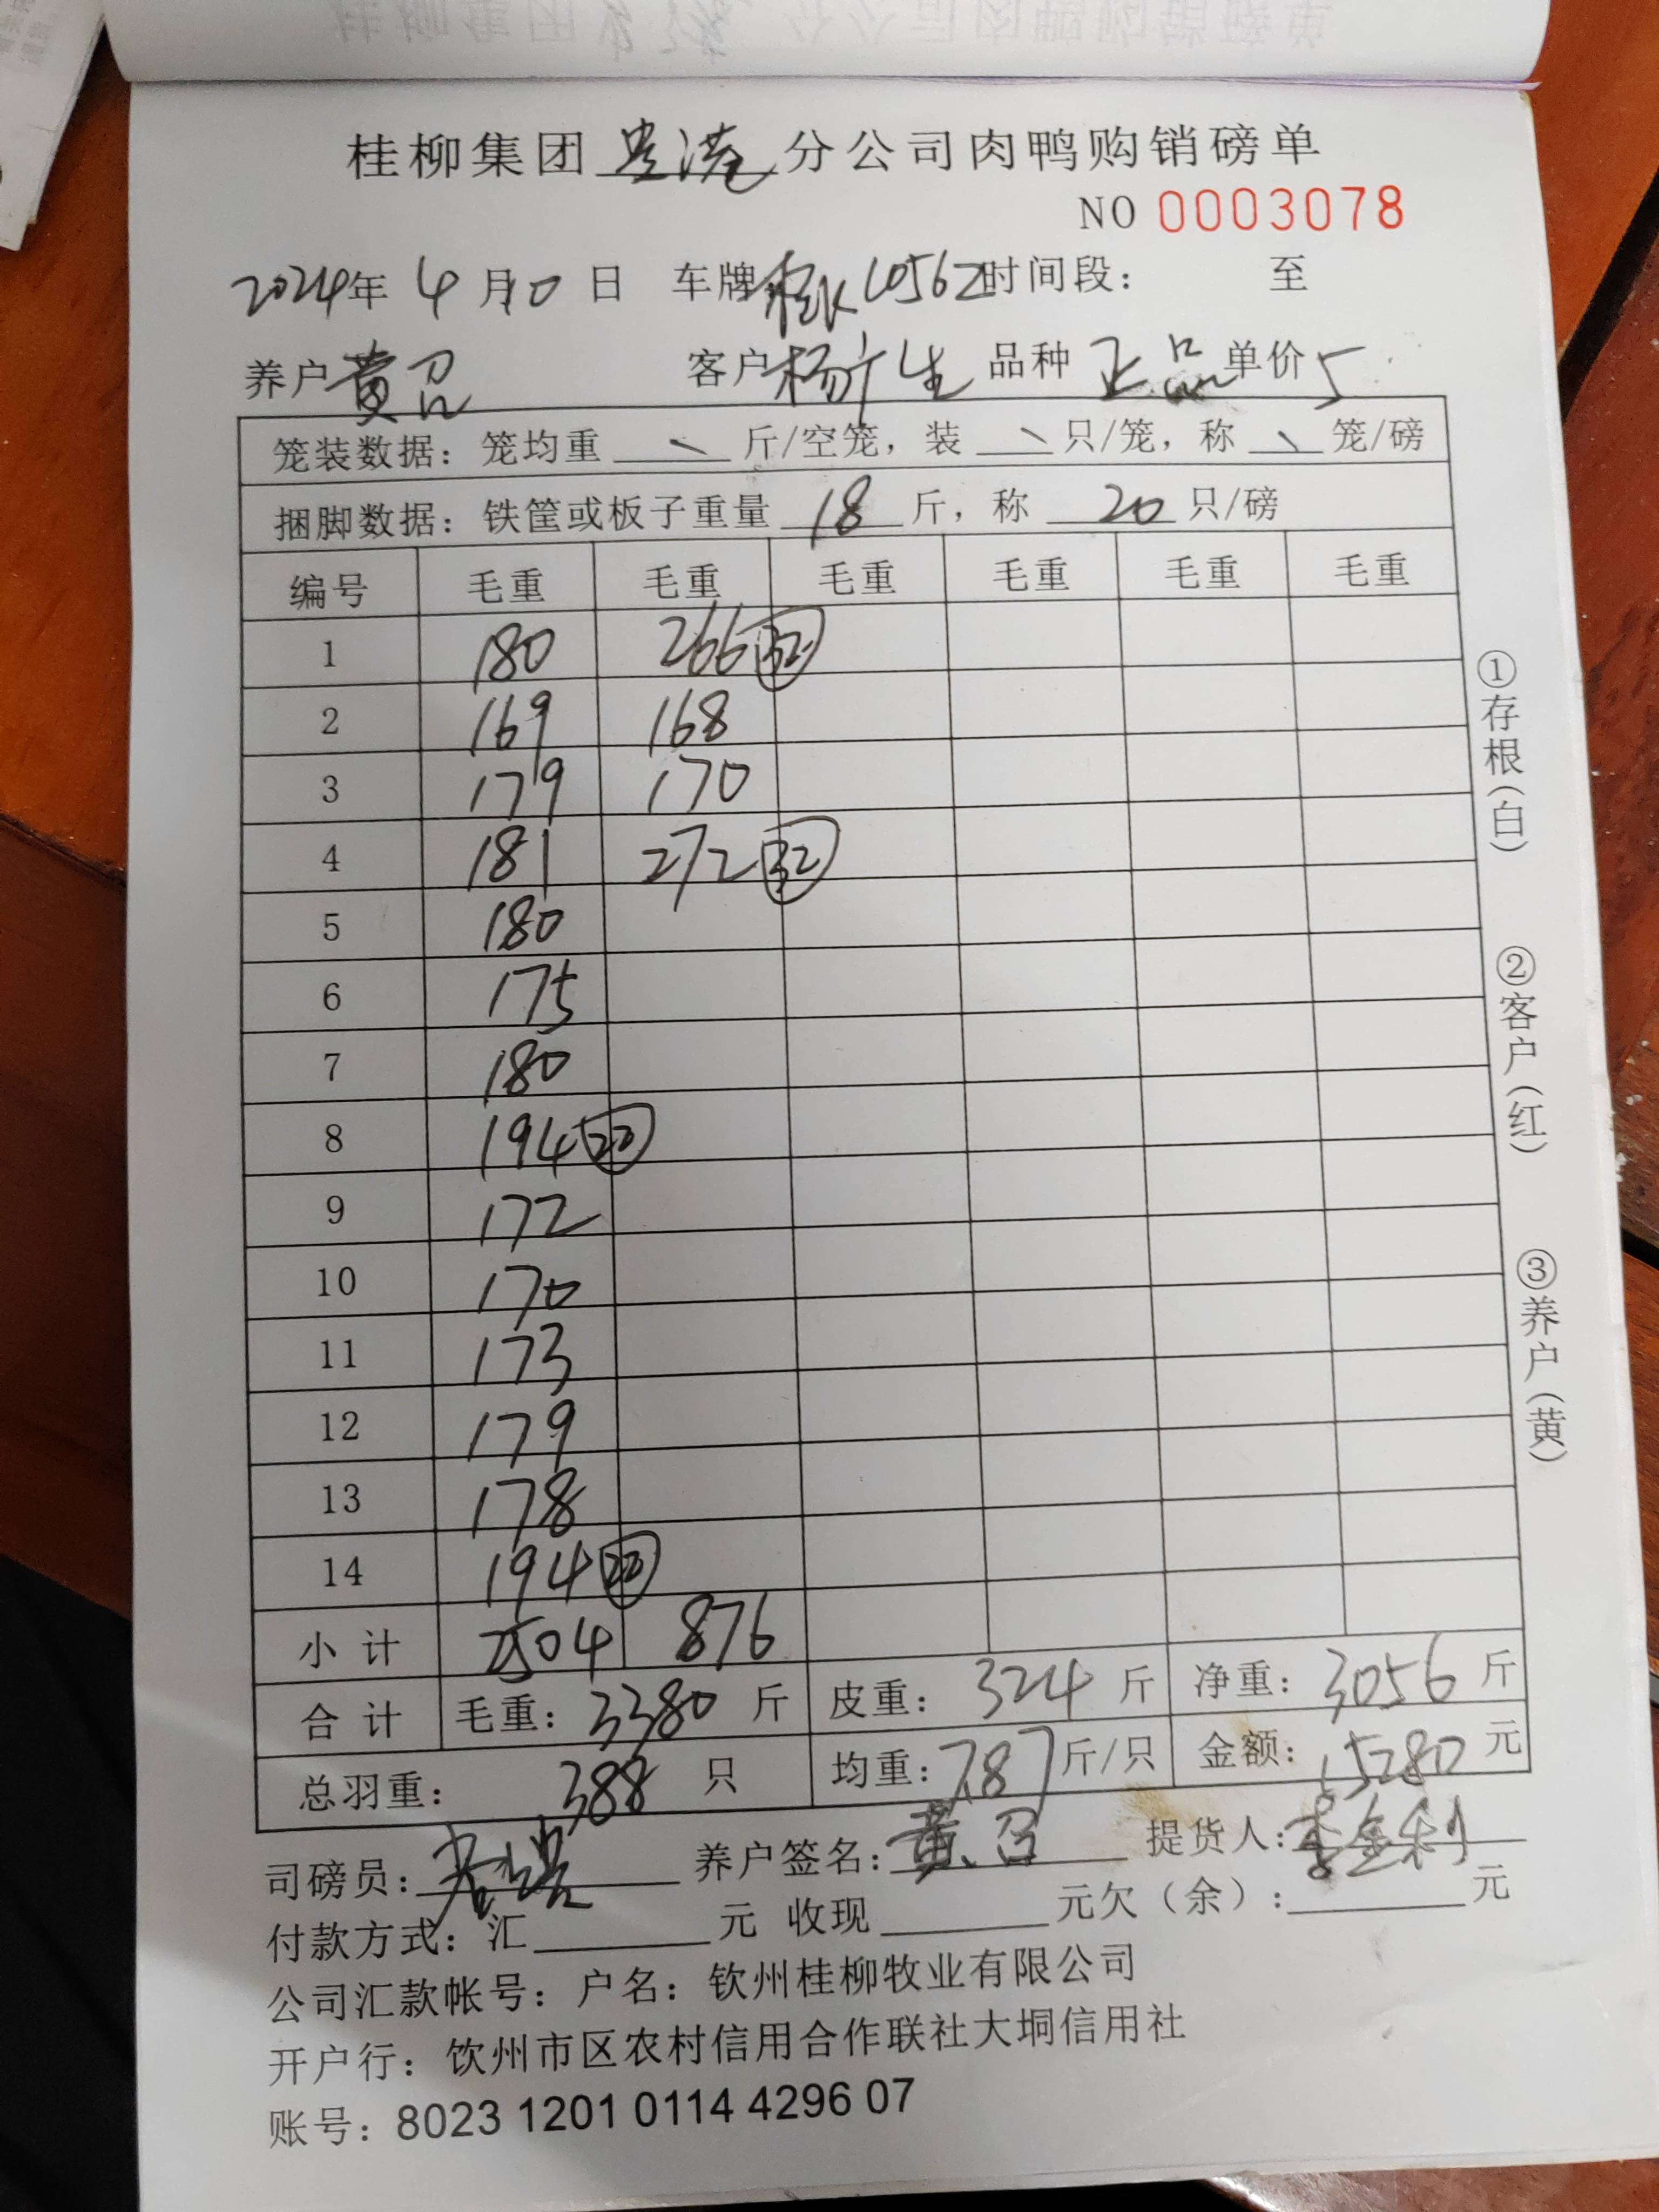 桂柳集团贵港分公司肉鸭购销磅单
NO 0003078
2024年 4 月10 日 车牌 1056Z 时间段： 至
养户 黄召 客户 杨广生 品种 正品 单价 5
笼装数据：笼均重 \ 斤/空笼，装 \ 只/笼，称 \ 笼/磅
捆脚数据：铁筐或板子重量 18 斤，称 20 只/磅
编号 毛重 毛重 毛重 毛重 毛重 毛重
1 180 266 32
2 169 168
3 179 170
4 181 272 32
5 180
6 175
7 180
8 194 22
9 172
10 170
11 173
12 179
13 178
14 194 22
小计 2504 876
合计 毛重：3380 斤 皮重：324 斤 净重：3056 斤
总羽重：388 只 均重：7.87 斤/只 金额：15280 元
司磅员： 养户签名：黄召 提货人：李金利
付款方式：汇 元 收现 元欠（余）： 元
公司汇款帐号：户名：钦州桂柳牧业有限公司
开户行：钦州市区农村信用合作联社大垌信用社
账号：8023 1201 0114 4296 07
①存根（白）
②客户（红）
③养户（黄）